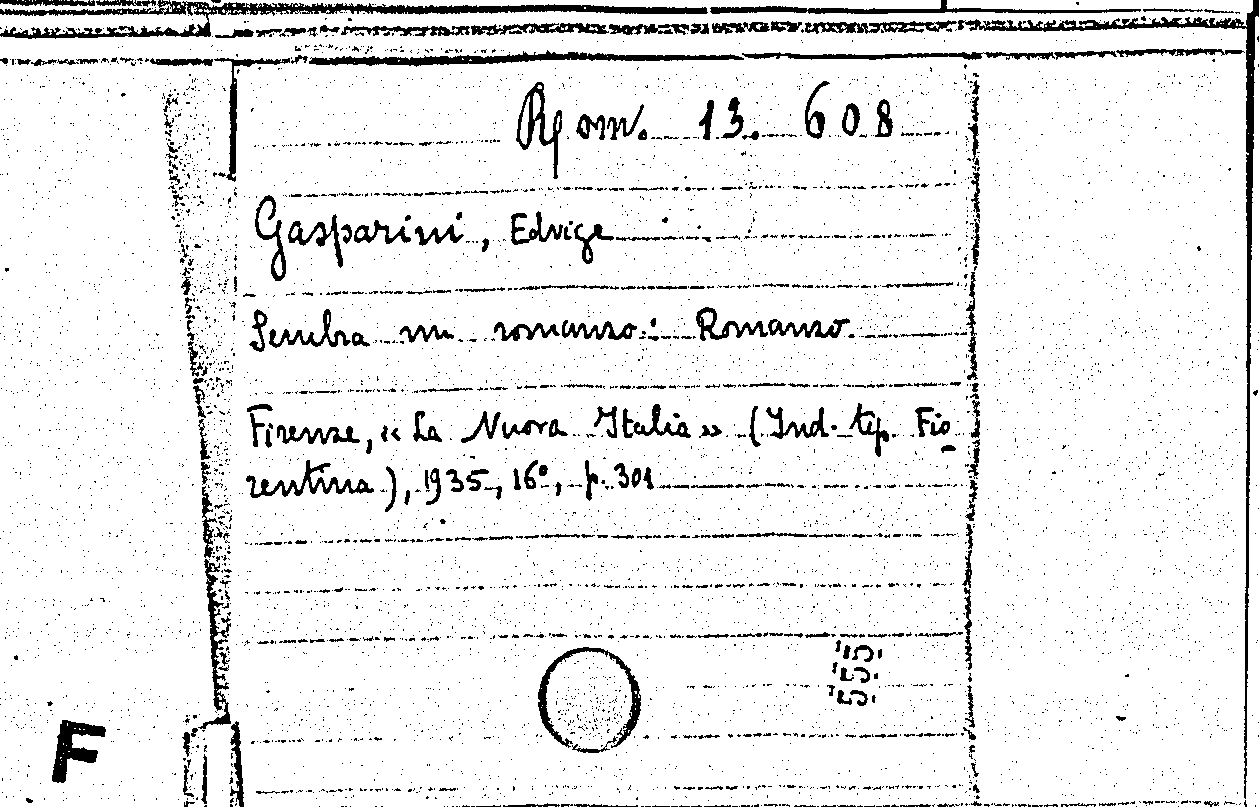 Rom. 13. 608
Gasparini, Edvige
Sembra un romanzo: Romanzo.
Firenze, « La Nuova Italia » (Ind. tip. Fio
rentina), 1935, 16º, p. 301
555
F